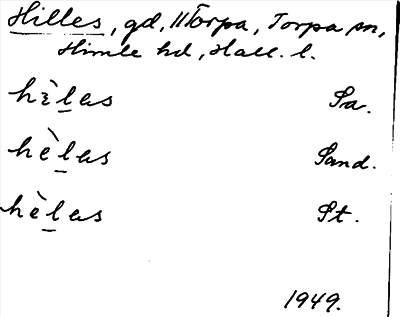 Hilles, gd, ⁊⁊Torpa, Torpa sn,
Himle hd, Hall. l.
hè̱las Sa.
hèl̲as Sand.
hèl̲as St.
1949.